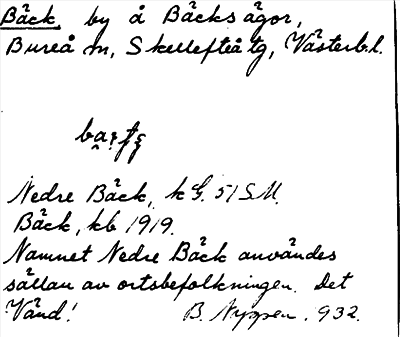 Bäck by å Bäcksägor,
Bureå sn, Skellefteå tg, Västerb.l.
Nedre Bäck, k G. 51 S.M.
Bäck, kb 1919.
Namnet Nedre Bäck användes
sällan av ortsbefolkningen. Det
Vänd! B. Nyppen. 932.